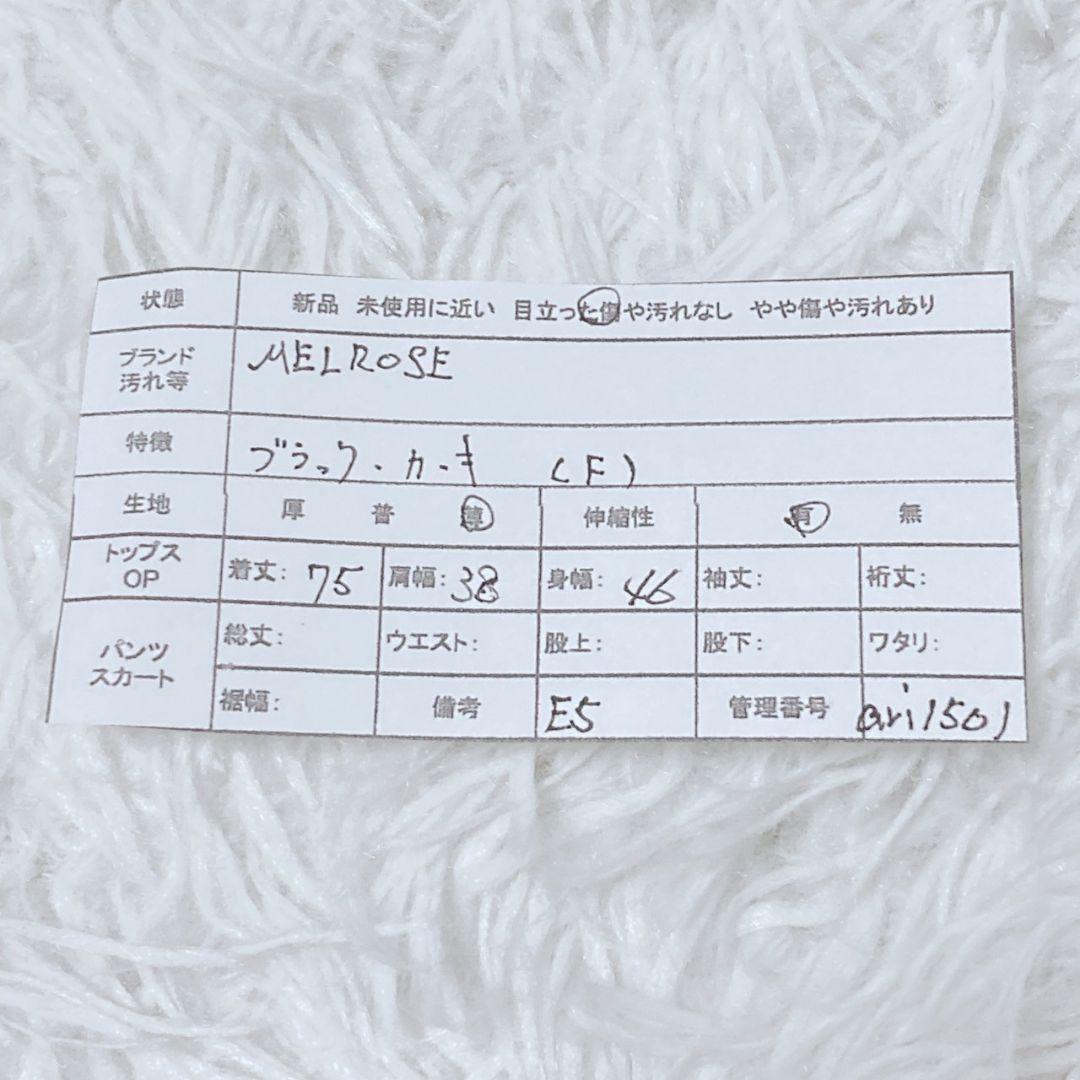 状態 新品 未使用に近い 目立った傷や汚れなし やや傷や汚れあり
ブランド
汚れ等
MELROSE
特徴 ブラック・カーキ (F)
生地 厚 普 薄 伸縮性 有 無
トップス
OP
着丈: 75 肩幅: 38 身幅: 46 袖丈: 裄丈:
パンツ
スカート
総丈: ウエスト: 股上: 股下: ワタリ:
裾幅: 備考 E5 管理番号 ari1501